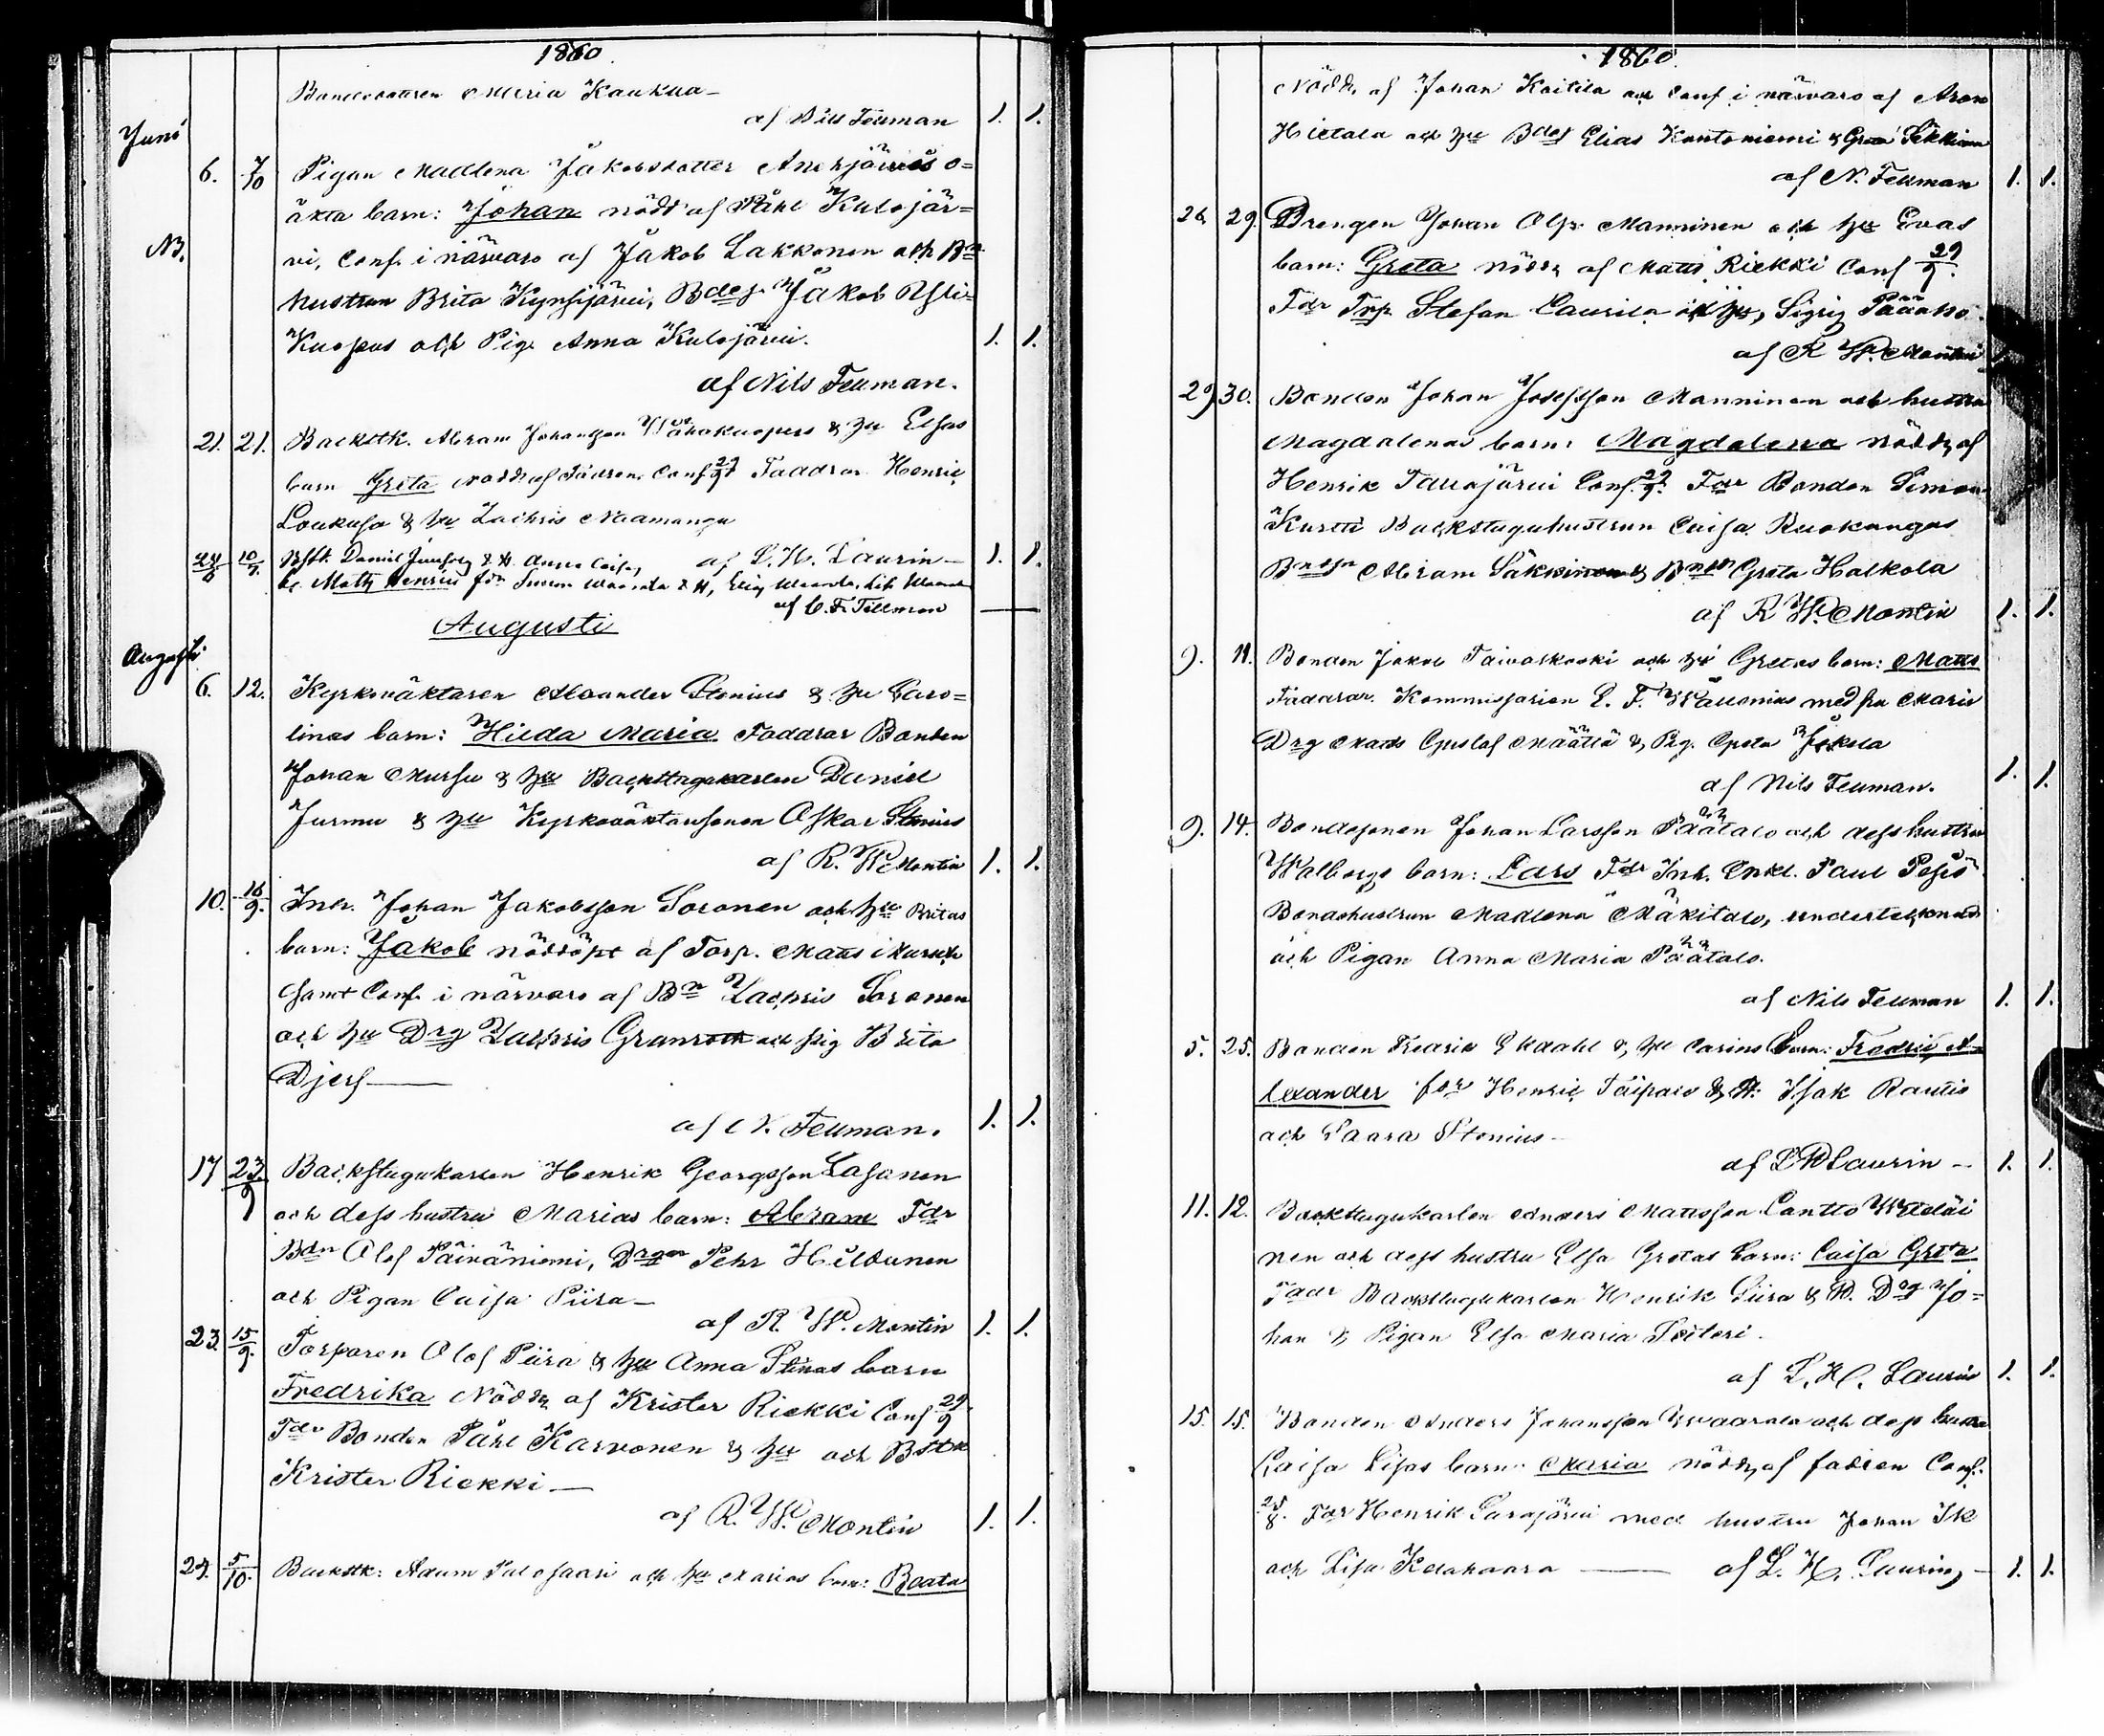 1860.
Bondedottren Maria Kaukua—
af Nils Feuman 1. 1.
Juni
6. 7/10 Pigan Madlena Jakobsdotter Anehjärvis o=
äkta barn: Johan nödd. af Påhl Kulojär=
NB. vi, Conf. i närvaro af Jakob Lakkonen och Bde
hustrun Brita Kynsijärvi, Bdes. Jakob Yli=
Kuopus och Pig. Anna Kulojärvi. 1. 1.
af Nils Feuman.
21. 21. Backstk. Abram Johansson Wähäkuopus & hu Elsas
barn Greta nödd. af Fadren. Conf. 29/9 Faddrar Henric
Loukusa & hu Zachris Naamanga
af L. H. Laurin— 1. 1.
Daniel & H. Anna Caisas
b. Matts Henric fdr Simon & H,
af C. F. Tillman
Augusti
Augusti
6. 12. Kyrkoväktaren Alexander Stenius & hu Caro=
linas barn: Hilda Maria Faddrar Bonden
Johan Mursu & hu Backstugukarlen Daniel
Jurmu & hu Kyrkoväktaresonen Oskar Stenius
af R. W. Montin 1. 1.
10. 16/9. Inh. Johan Jakobsson Soronen och hu Britas
barn: Jakob nöddöpt af Torp. Matts Mursu
samt Conf. i närvaro af Bn Zachris Soronen
och hu Drg Zachris Granroth och pig Brita
Djerf—
af N. Feuman. 1. 1.
17 23/9 Backstugukarlen Henrik Georgsson Lasanen
och dess hustru Marias barn: Abram Fdr
Bdn Olof Päiväniemi, Drgn Pehr Hildunen
och Pigan Caisa Piira—
af R. W. Montin 1. 1.
23. 15/9. Torparen Olof Piira & hu Anna Stinas barn
Fredrika Nödd. af Krister Riekki Conf 29/9
Fdr Bonden Påhl Karvonen & hu och Bstk
Krister Riekki—
af R. W. Montin 1. 1.
24. 5/10. Backstk: Adam Palosaari och hu Marias barn: Beata
1860.
Nödd. af Johan Kaitila och Conf i närvaro af Aron
Hietala och hu Bdes Elias Kantoniemi & Greta
af N. Feuman 1. 1.
26. 29. Drengen Johan Olss. Manninen och hu Evas
barn: Greta nödd. af Matts Riekki Conf 29/9.
Fdr Trp. Stefan Laurila och hu, Sigrig Pääaho.
af R W. Montin
29. 30. Bonden Johan Josefsson Manninen och hustru
Magdalenas barn: Magdalena nödd. af
Henrik Tauojärvi Conf. 29/9. Fdr Bonden Simon
Kurtti Backstuguhustrun Caisa Ruokangas
Bnssn Abram Säkkinen & Bndr Greta Halkola
af R W. Montin 1. 1.
9. 11. Bonden Jakob Taivalkoski och hu Gretas barn: Matts
Faddrar. Kommissarien E. F. Wallenius med fru Maria
Drg Mats Gustaf Määttä & Pig. Greta Jokela
af Nils Feuman. 1. 1.
9. 14. Bondesonen Johan Larsson Päätalo och dess hustru
Walborgs barn: Lars Fdr Inh. Enkl. Paul Pesiö
Bondehustrun Madlena Mäkitalo, undertecknad
och Pigan Anna Maria Päätalo.
af Nils Feuman 1. 1.
5. 25. Bonden Fredric Ekdahl & hu Carins barn: Fredric A=
lexander fdr Henric Taipale & H. Isak Rautio
och Saara Stenius—
af L H Laurin— 1. 1.
11. 12. Backstugukarlen Anders Mattsson Lantto
nen och dess hustru Elsa Gretas barn: Caisa Greta
Fadr Backstugukarlen Henrik Piira & H. Drg Jo=
han & Pigan Elsa Maria
af L. H. Laurin 1. 1.
15. 15. Bonden Anders Johansson och dess hustru
Caisa Lisas barn: Maria nödd. af fadren Conf.
25/8. Fdr Henrik Sarajärvi med hustru Johan
och Lisa — af L. H. Laurin, — 1. 1.